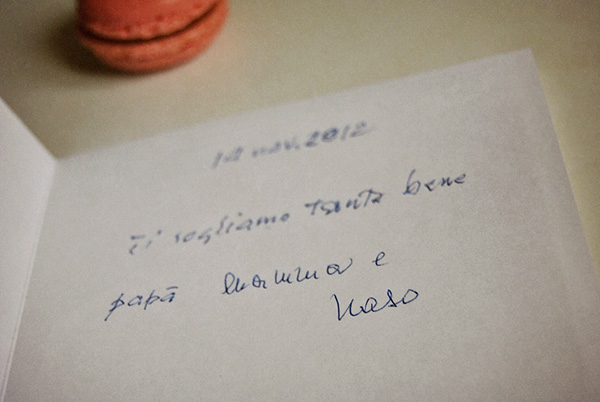 12 nov. 2012
Ti vogliamo tanto bene
papà mamma e
Naso